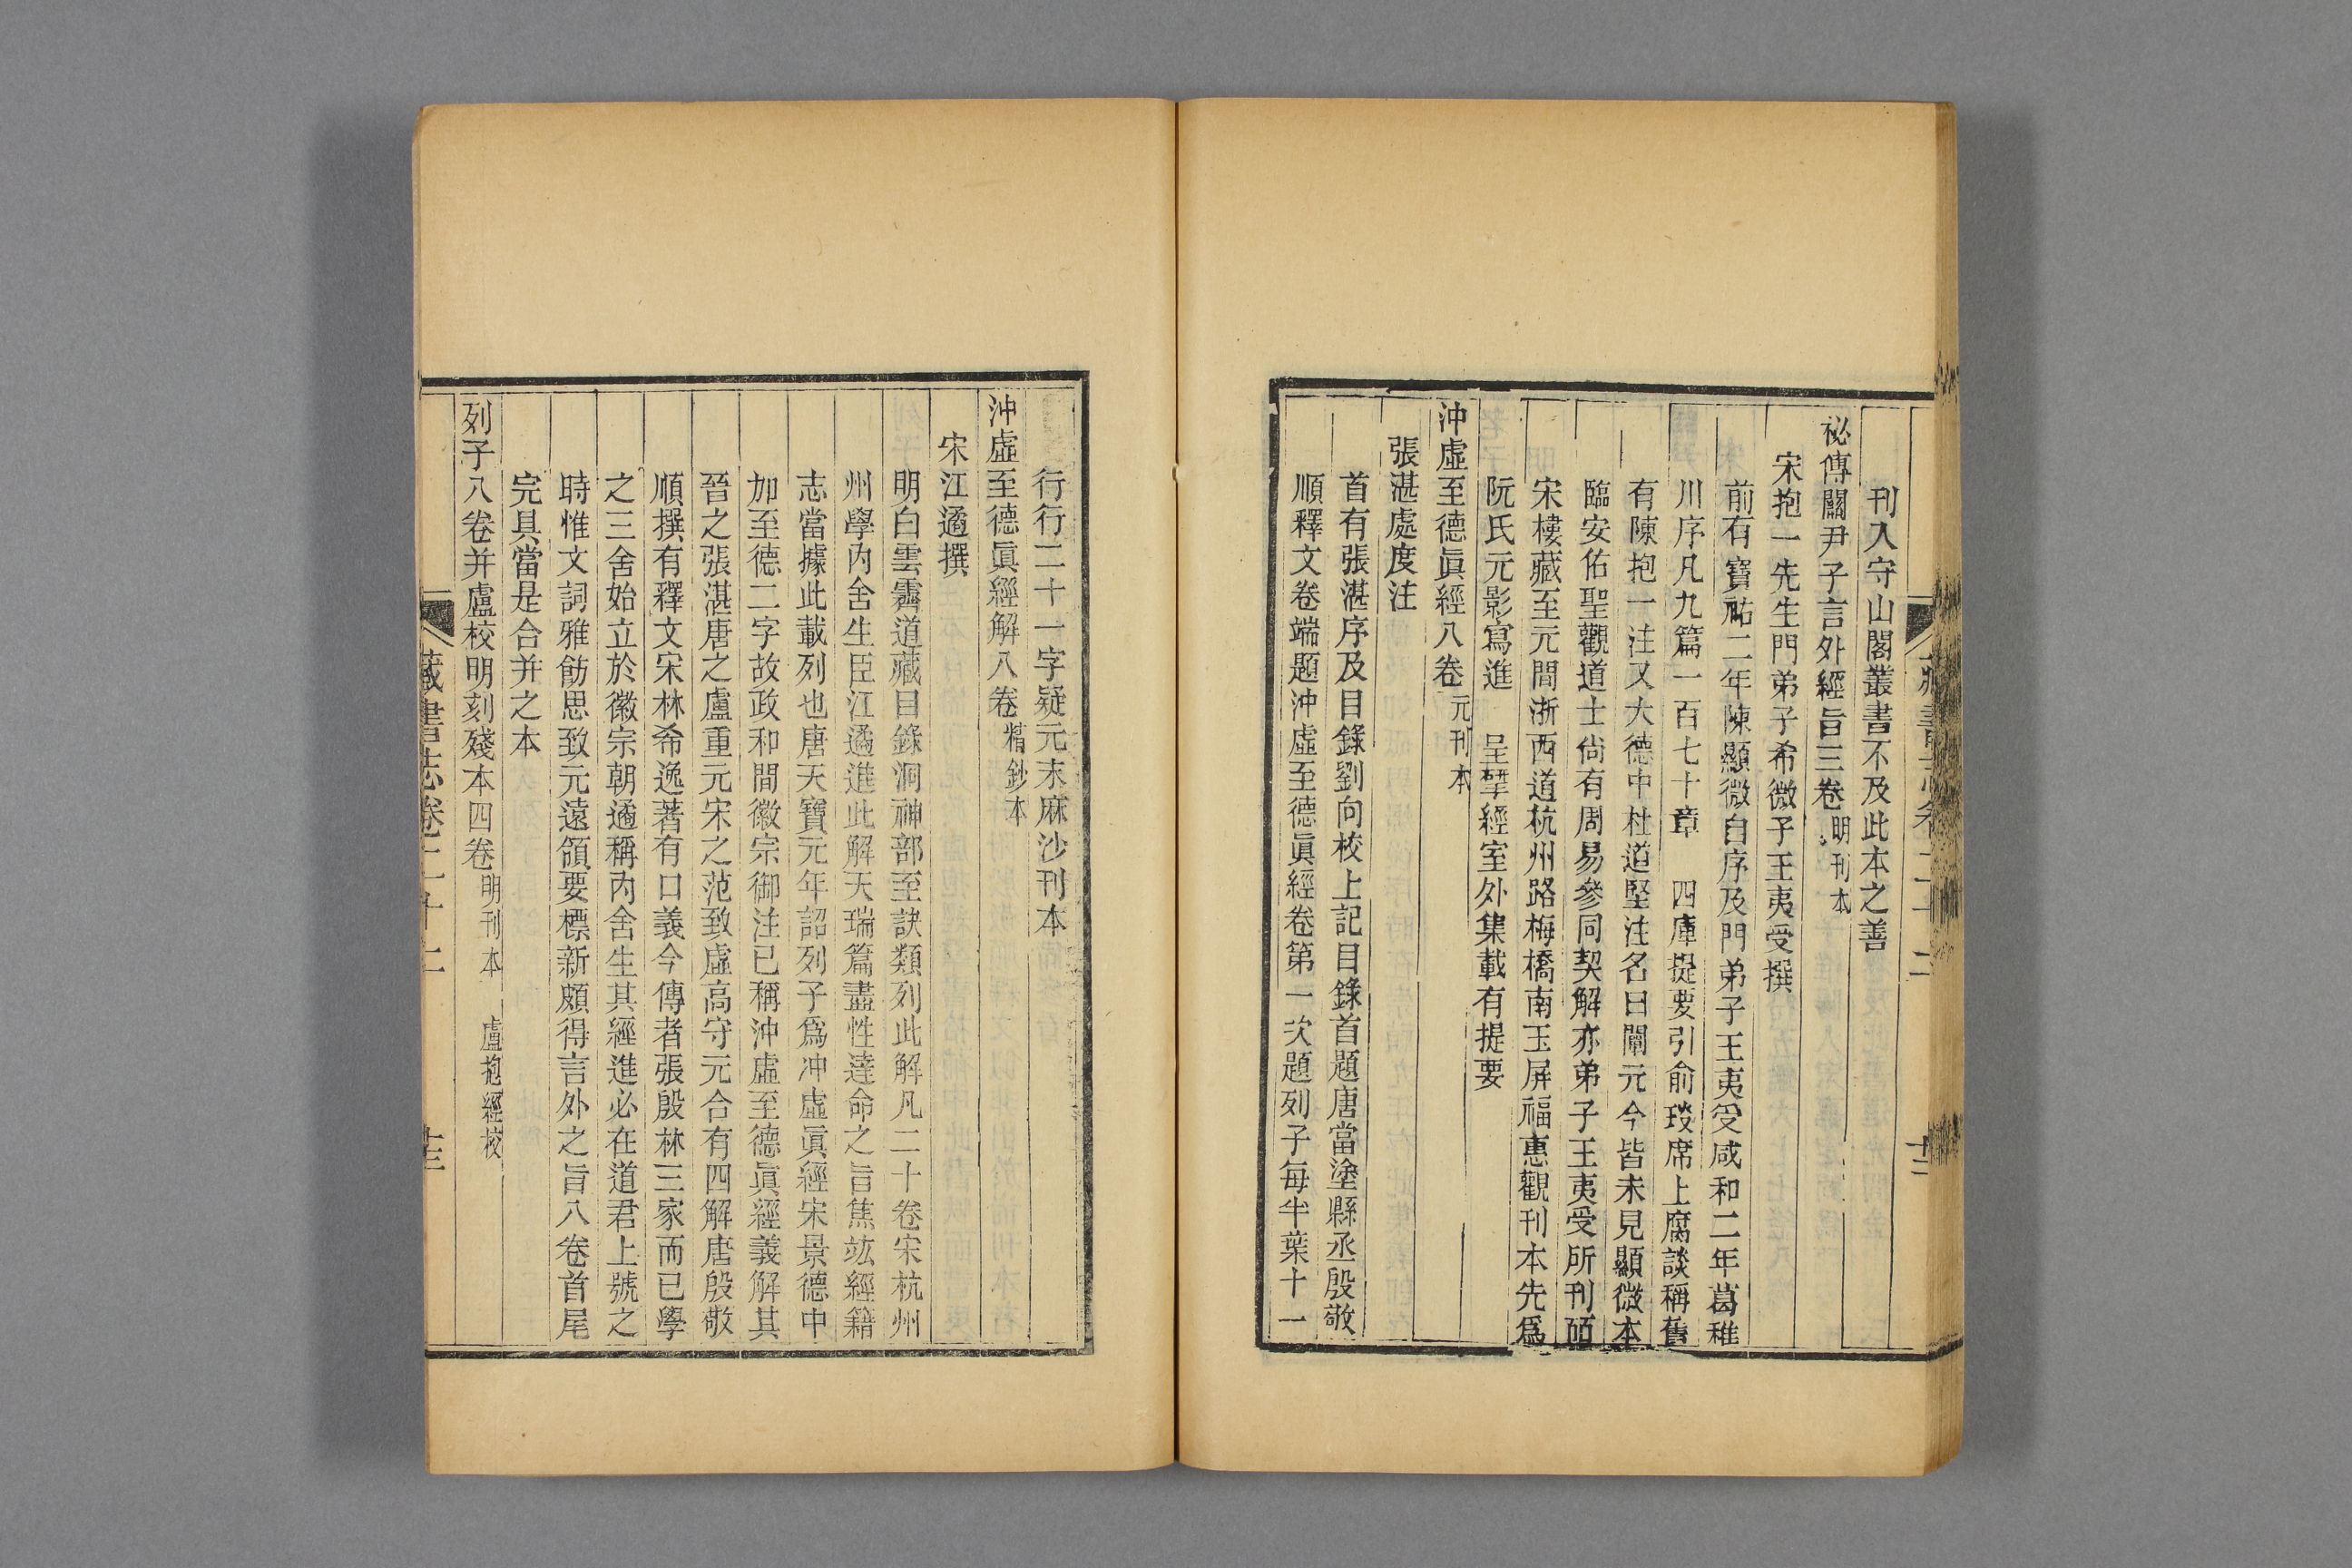 刊入守山閣叢書不及此本之善
祕傳關尹子言外經旨三卷 明刊本
宋抱一先生門弟子希微子王夷受撰
前有寶祐二年陳顯微自序及門弟子王夷受咸和二年葛稚
川序凡九篇一百七十章 四庫提要引俞琰席上腐談稱舊
有陳抱一注又大德中杜道堅注名曰闡元今皆未見顯微本
臨安佑聖觀道士尙有周易參同契解亦弟子王夷受所刊皕
宋樓藏至元間浙西道杭州路梅橋南玉屏福惠觀刊本先爲
阮氏元影寫進 呈揅經室外集載有提要
沖虛至德眞經八卷 元刊本
張湛處度注
首有張湛序及目錄劉向校上記目錄首題唐當塗縣丞殷敬
順釋文卷端題沖虛至德眞經卷第一次題列子每半葉十一
行行二十一字疑元末麻沙刊本
沖虛至德眞經解八卷 精鈔本
宋江遹撰
明白雲霽道藏目錄洞神部至訣類列此解凡二十卷宋杭州
州學內舍生臣江遹進此解天瑞篇盡性達命之旨焦竑經籍
志當據此載列也唐天寶元年詔列子爲沖虛眞經宋景德中
加至德二字故政和間徽宗御注已稱沖虛至德眞經義解其
晉之張湛唐之盧重元宋之范致虛高守元合有四解唐殷敬
順撰有釋文宋林希逸著有口義今傳者張殷林三家而已學
之三舍始立於徽宗朝遹稱內舍生其經進必在道君上號之
時惟文詞雅飭思致元遠領要標新頗得言外之旨八卷首尾
完具當是合并之本
列子八卷并盧校明刻殘本四卷 明刊本 盧抱經校
藏書志卷二十二
十三